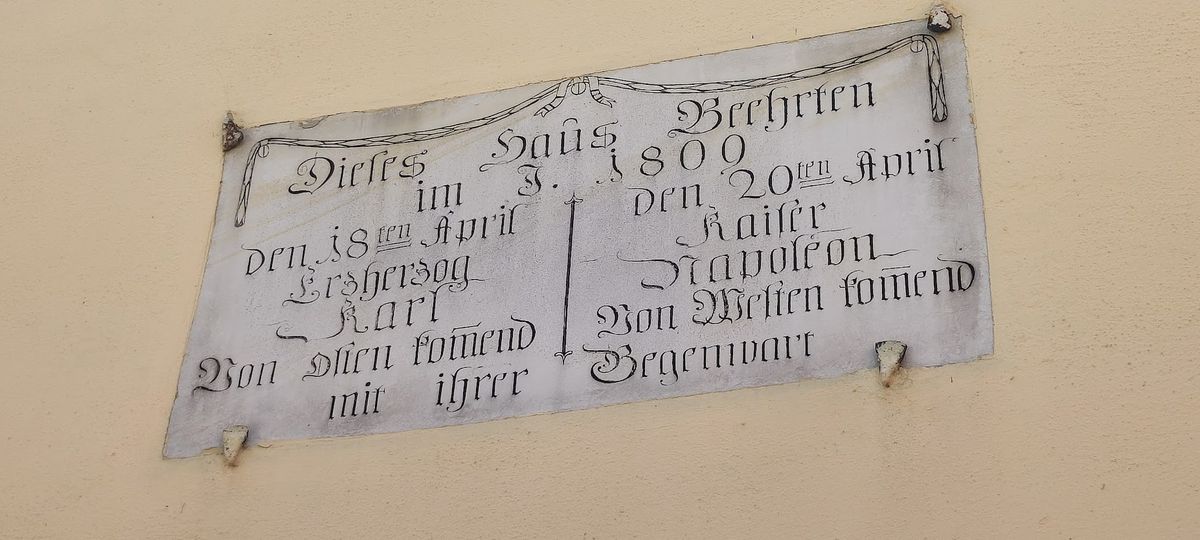 Dieses Haus Beehrten
im J. 1809
den 18ten April
Erzherzog
Karl
Von Osten kom̄end
den 20ten April
Kaiser
Napoleon
Von Westen kom̄end
mit ihrer Gegenwart